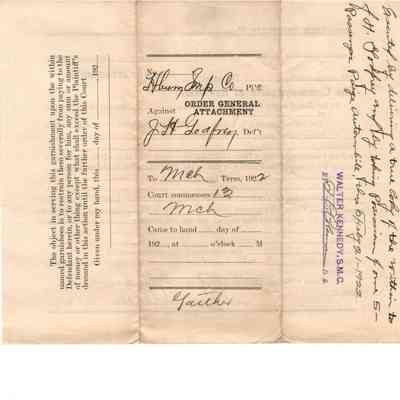 The object in serving this garnishment upon the within
named garnishees is to restrain them severally from paying to the
Defendant herein, or to any person for him, any sum or amount
of money or other thing except what shall exceed the Plaintiff's
demand in this action until the further order of this Court.
Given under my hand, this day of
192
Imp Co Pl'ff
ORDER GENERAL
Against ATTACHMENT
J H Godfrey Def't
To Mch Term, 1922
Court commences 13
Mch
Came to hand day of
192 at o'clock M
Gaither
Executed by delivering a true copy of the within to
J. H. Godfrey and by taking Possession of one 5-
Passenger Paige Automobile Feby 21-1922
WALTER KENNEDY, S.M.C.
BY D.S.